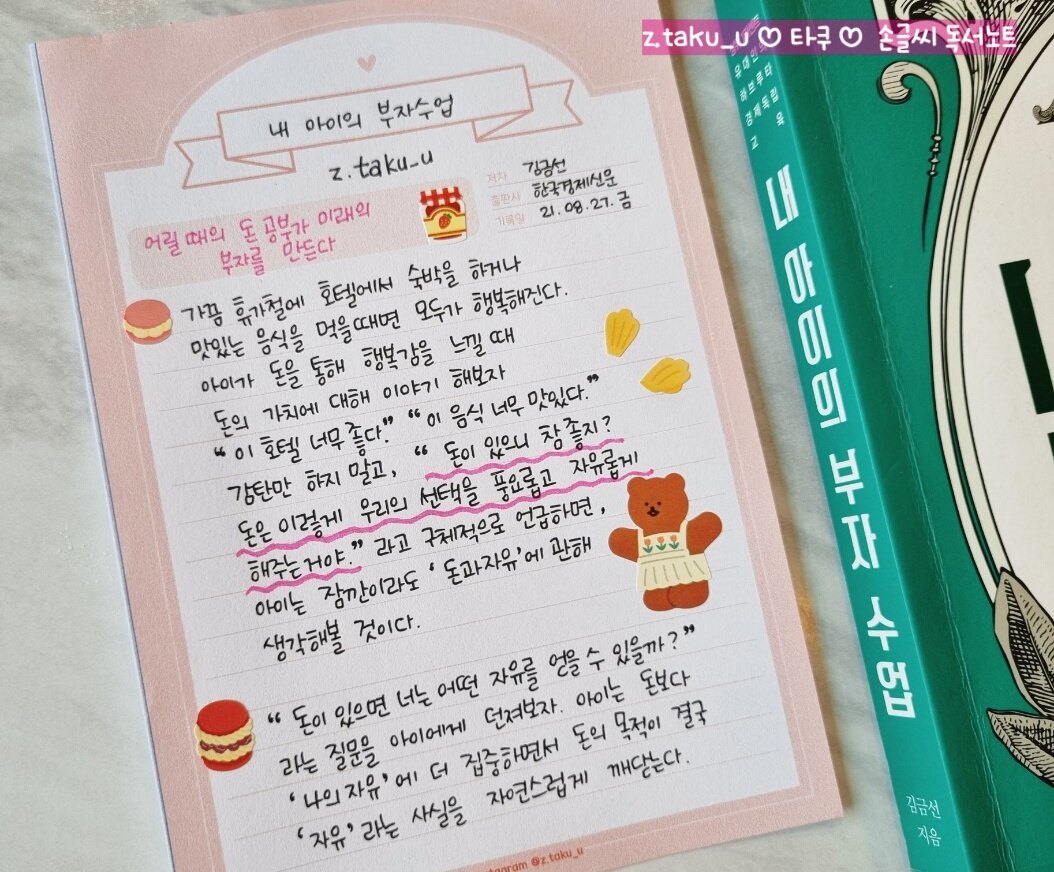 z.taku_u ♡ 타쿠 ♡ 손글씨 독서노트
내 아이의 부자수업
z.taku_u
저자 김금선
출판사 한국경제신문
기록일 21.08.27.금
어릴 때의 돈 공부가 미래의
부자를 만든다
가끔 휴가철에 호텔에서 숙박을 하거나
맛있는 음식을 먹을때면 모두가 행복해진다.
아이가 돈을 통해 행복감을 느낄 때
돈의 가치에 대해 이야기 해보자
“이 호텔 너무 좋다.” “이 음식 너무 맛있다.”
감탄만 하지 말고, “돈이 있으니 참 좋지?
돈은 이렇게 우리의 선택을 풍요롭고 자유롭게
해주는거야.” 라고 구체적으로 언급하면,
아이는 잠깐이라도 ‘돈과자유’에 관해
생각해볼 것이다.
“돈이 있으면 너는 어떤 자유를 얻을 수 있을까?”
라는 질문을 아이에게 던져보자. 아이는 돈보다
‘나의 자유’에 더 집중하면서 돈의 목적이 결국
‘자유’라는 사실을 자연스럽게 깨닫는다.
@z.taku_u
유대인의
하브루타
경제독립
교육
내 아이의 부자 수업
김금선
지음